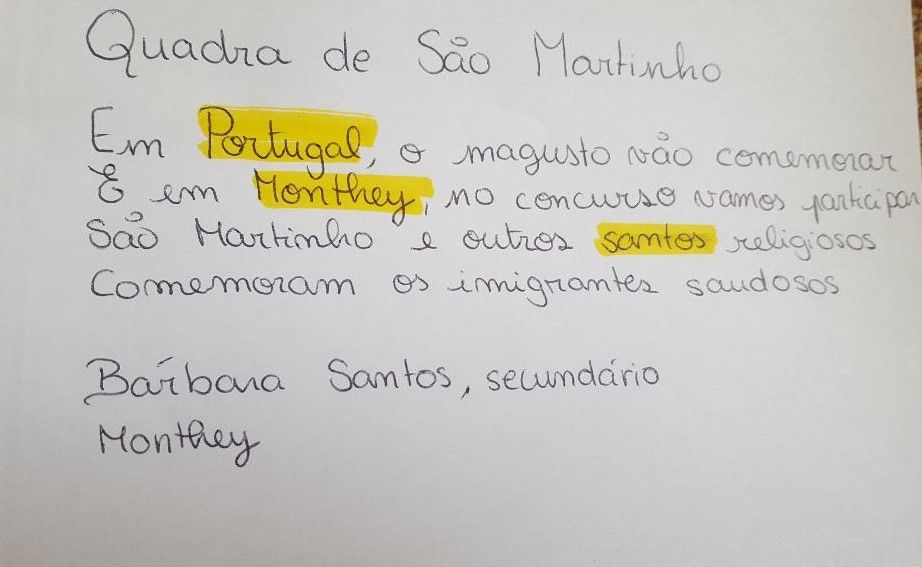 Quadra de São Martinho
Em Portugal, o magusto vão comemorar
E em Monthey, no concurso vamos participar
São Martinho e outros santos religiosos
Comemoram os imigrantes saudosos
Bárbara Santos, secundário
Monthey